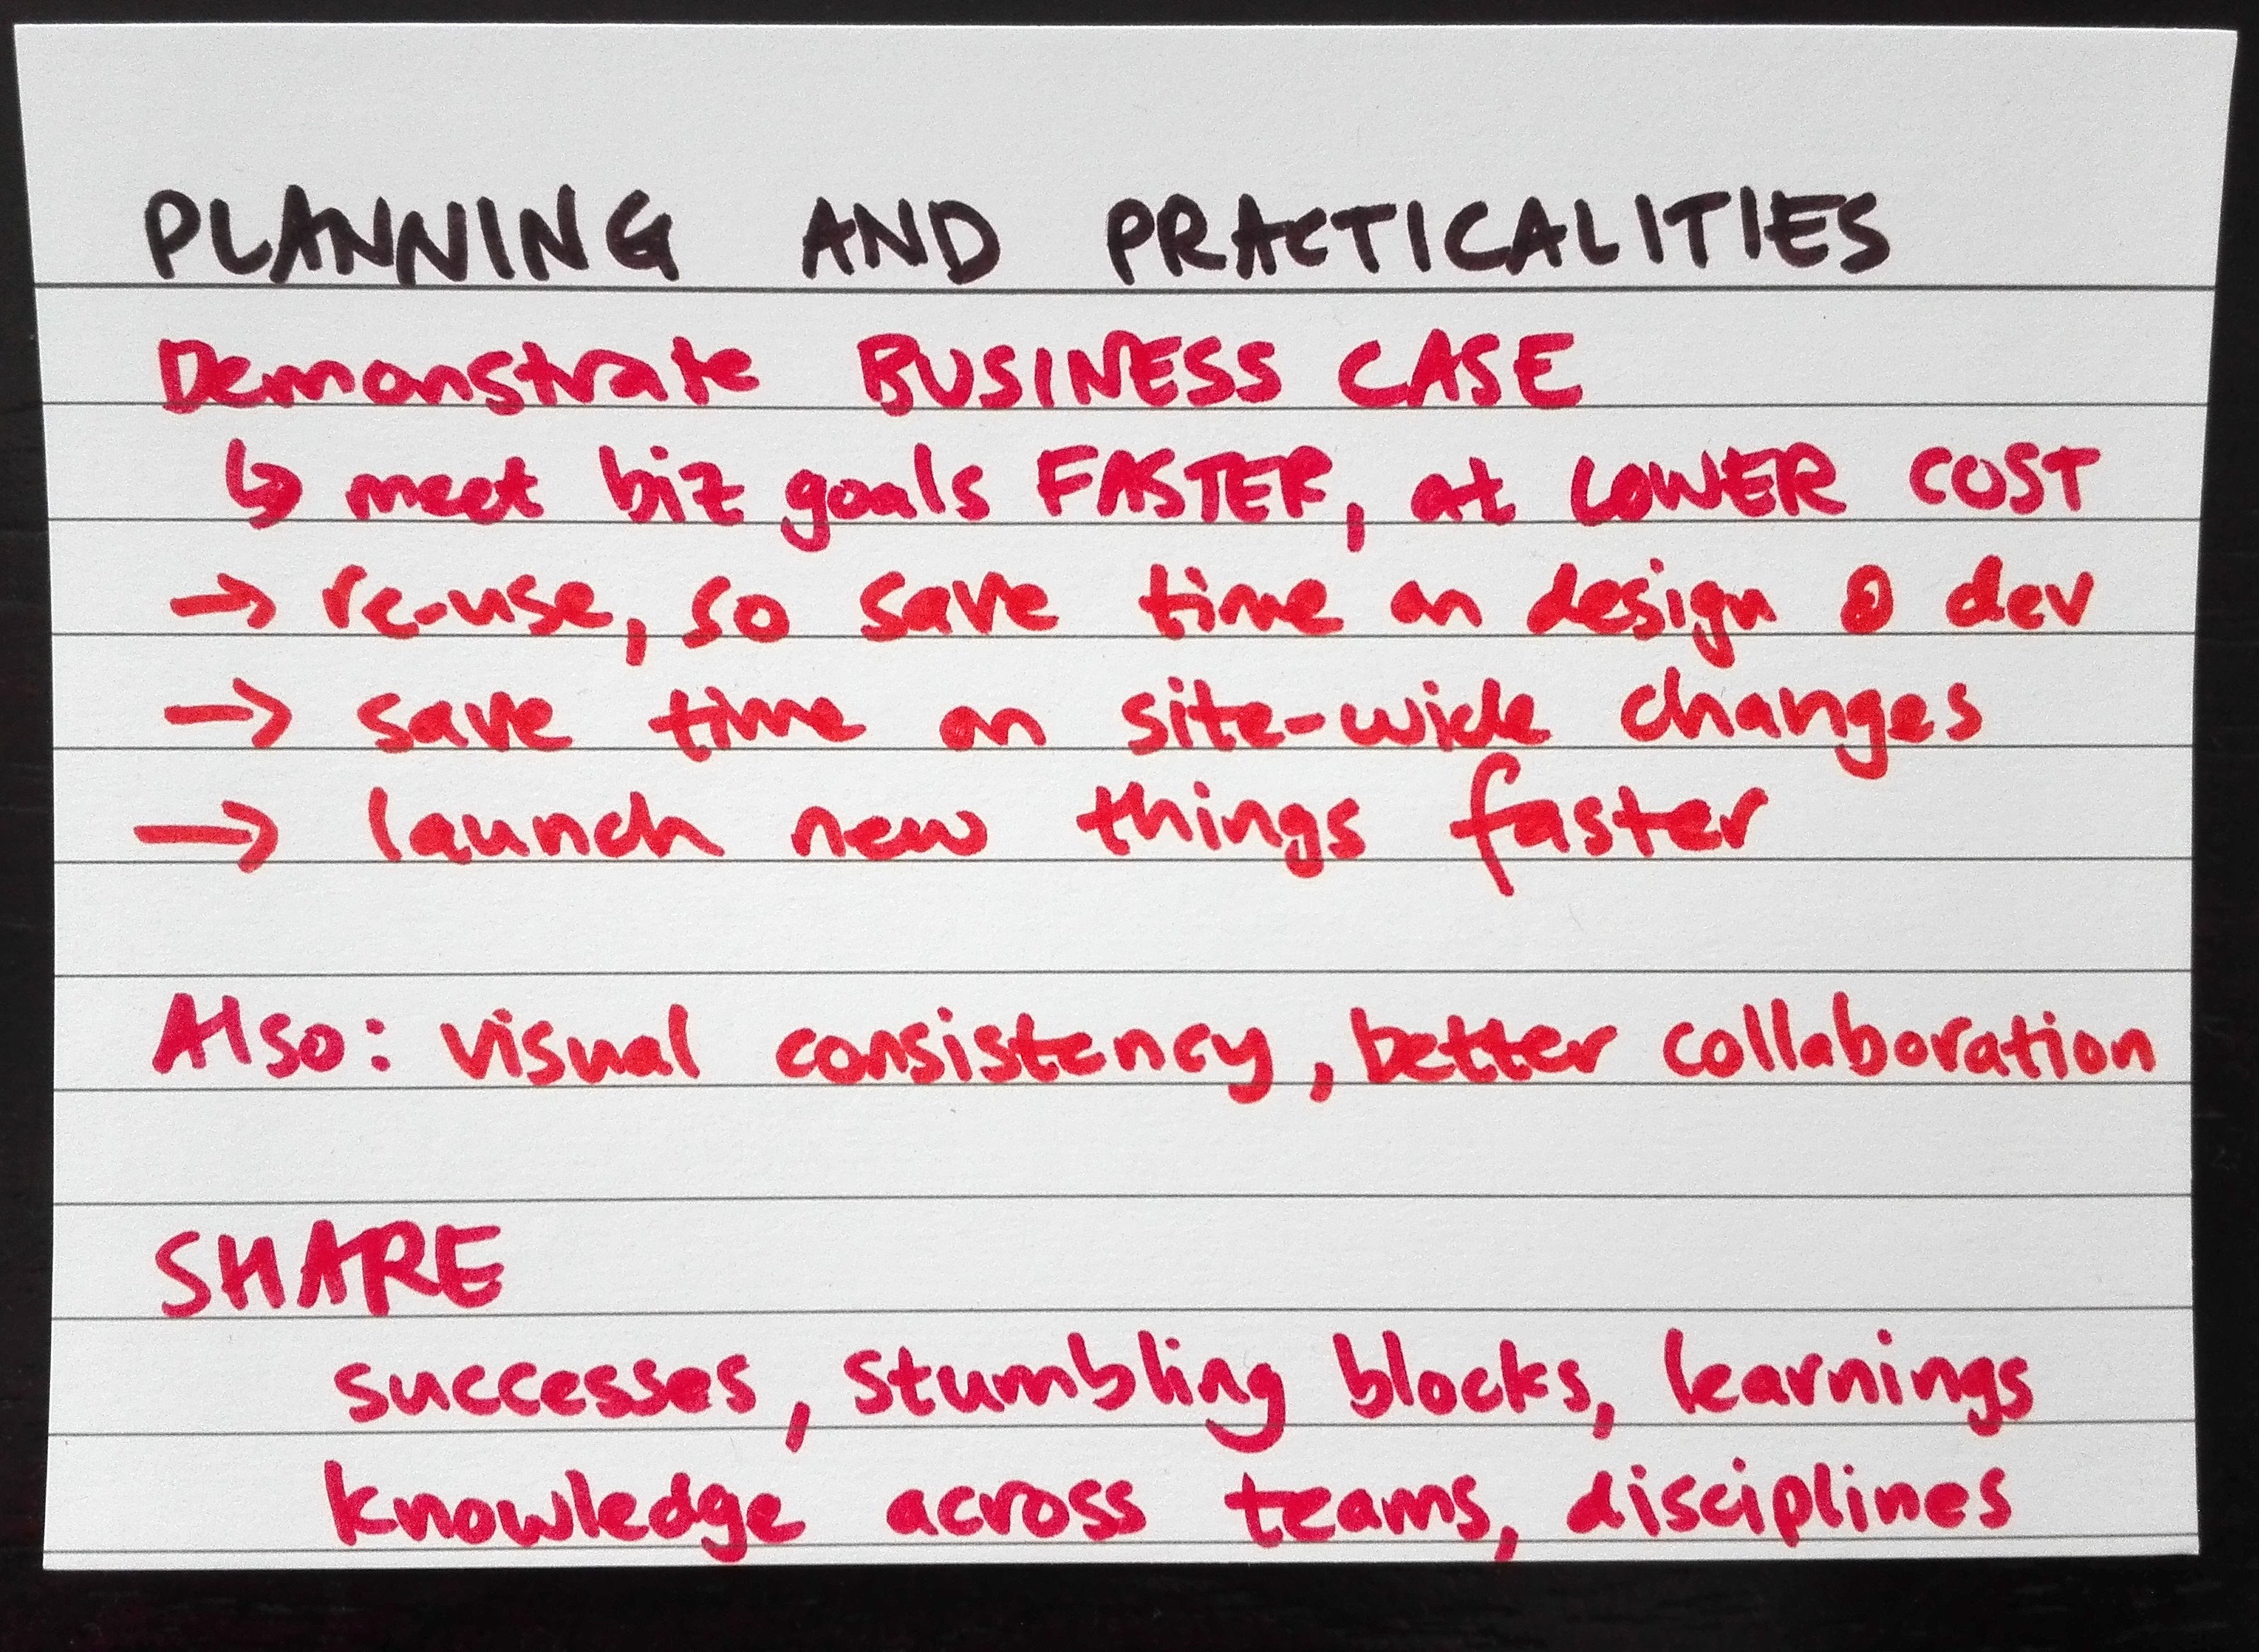 PLANNING AND PRACTICALITIES
Demonstrate BUSINESS CASE
↳ meet biz goals FASTER, at LOWER COST
→ re-use, so save time on design & dev
→ save time on site-wide changes
→ launch new things faster
Also: visual consistency, better collaboration
SHARE
successes, stumbling blocks, learnings
knowledge across teams, disciplines